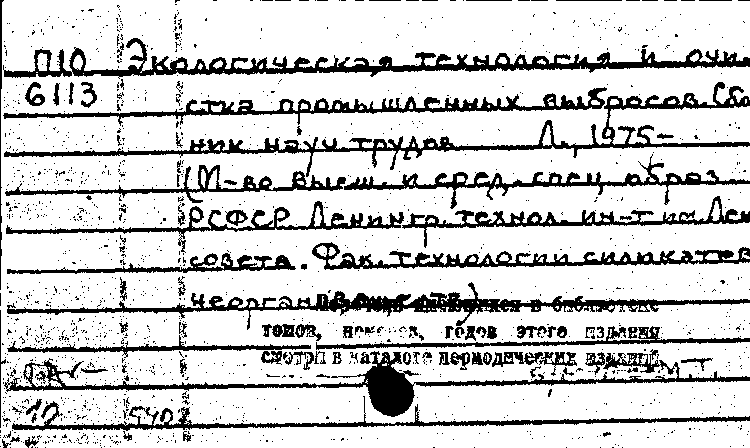 П10 Экологическая технология и очи-
6113 стка промышленных выбросов. Сбо
ник науч трудов Л., 1975-
(М-во высш. и сред. спец образ
РСФСР. Ленингр. технол. ин-т им. Лен
совета. Фак. технологии силикатов
неорган
имеющихся в библиотеке
томов, номеров, годов этого издания
смотри в каталоге периодических изданий
10 540